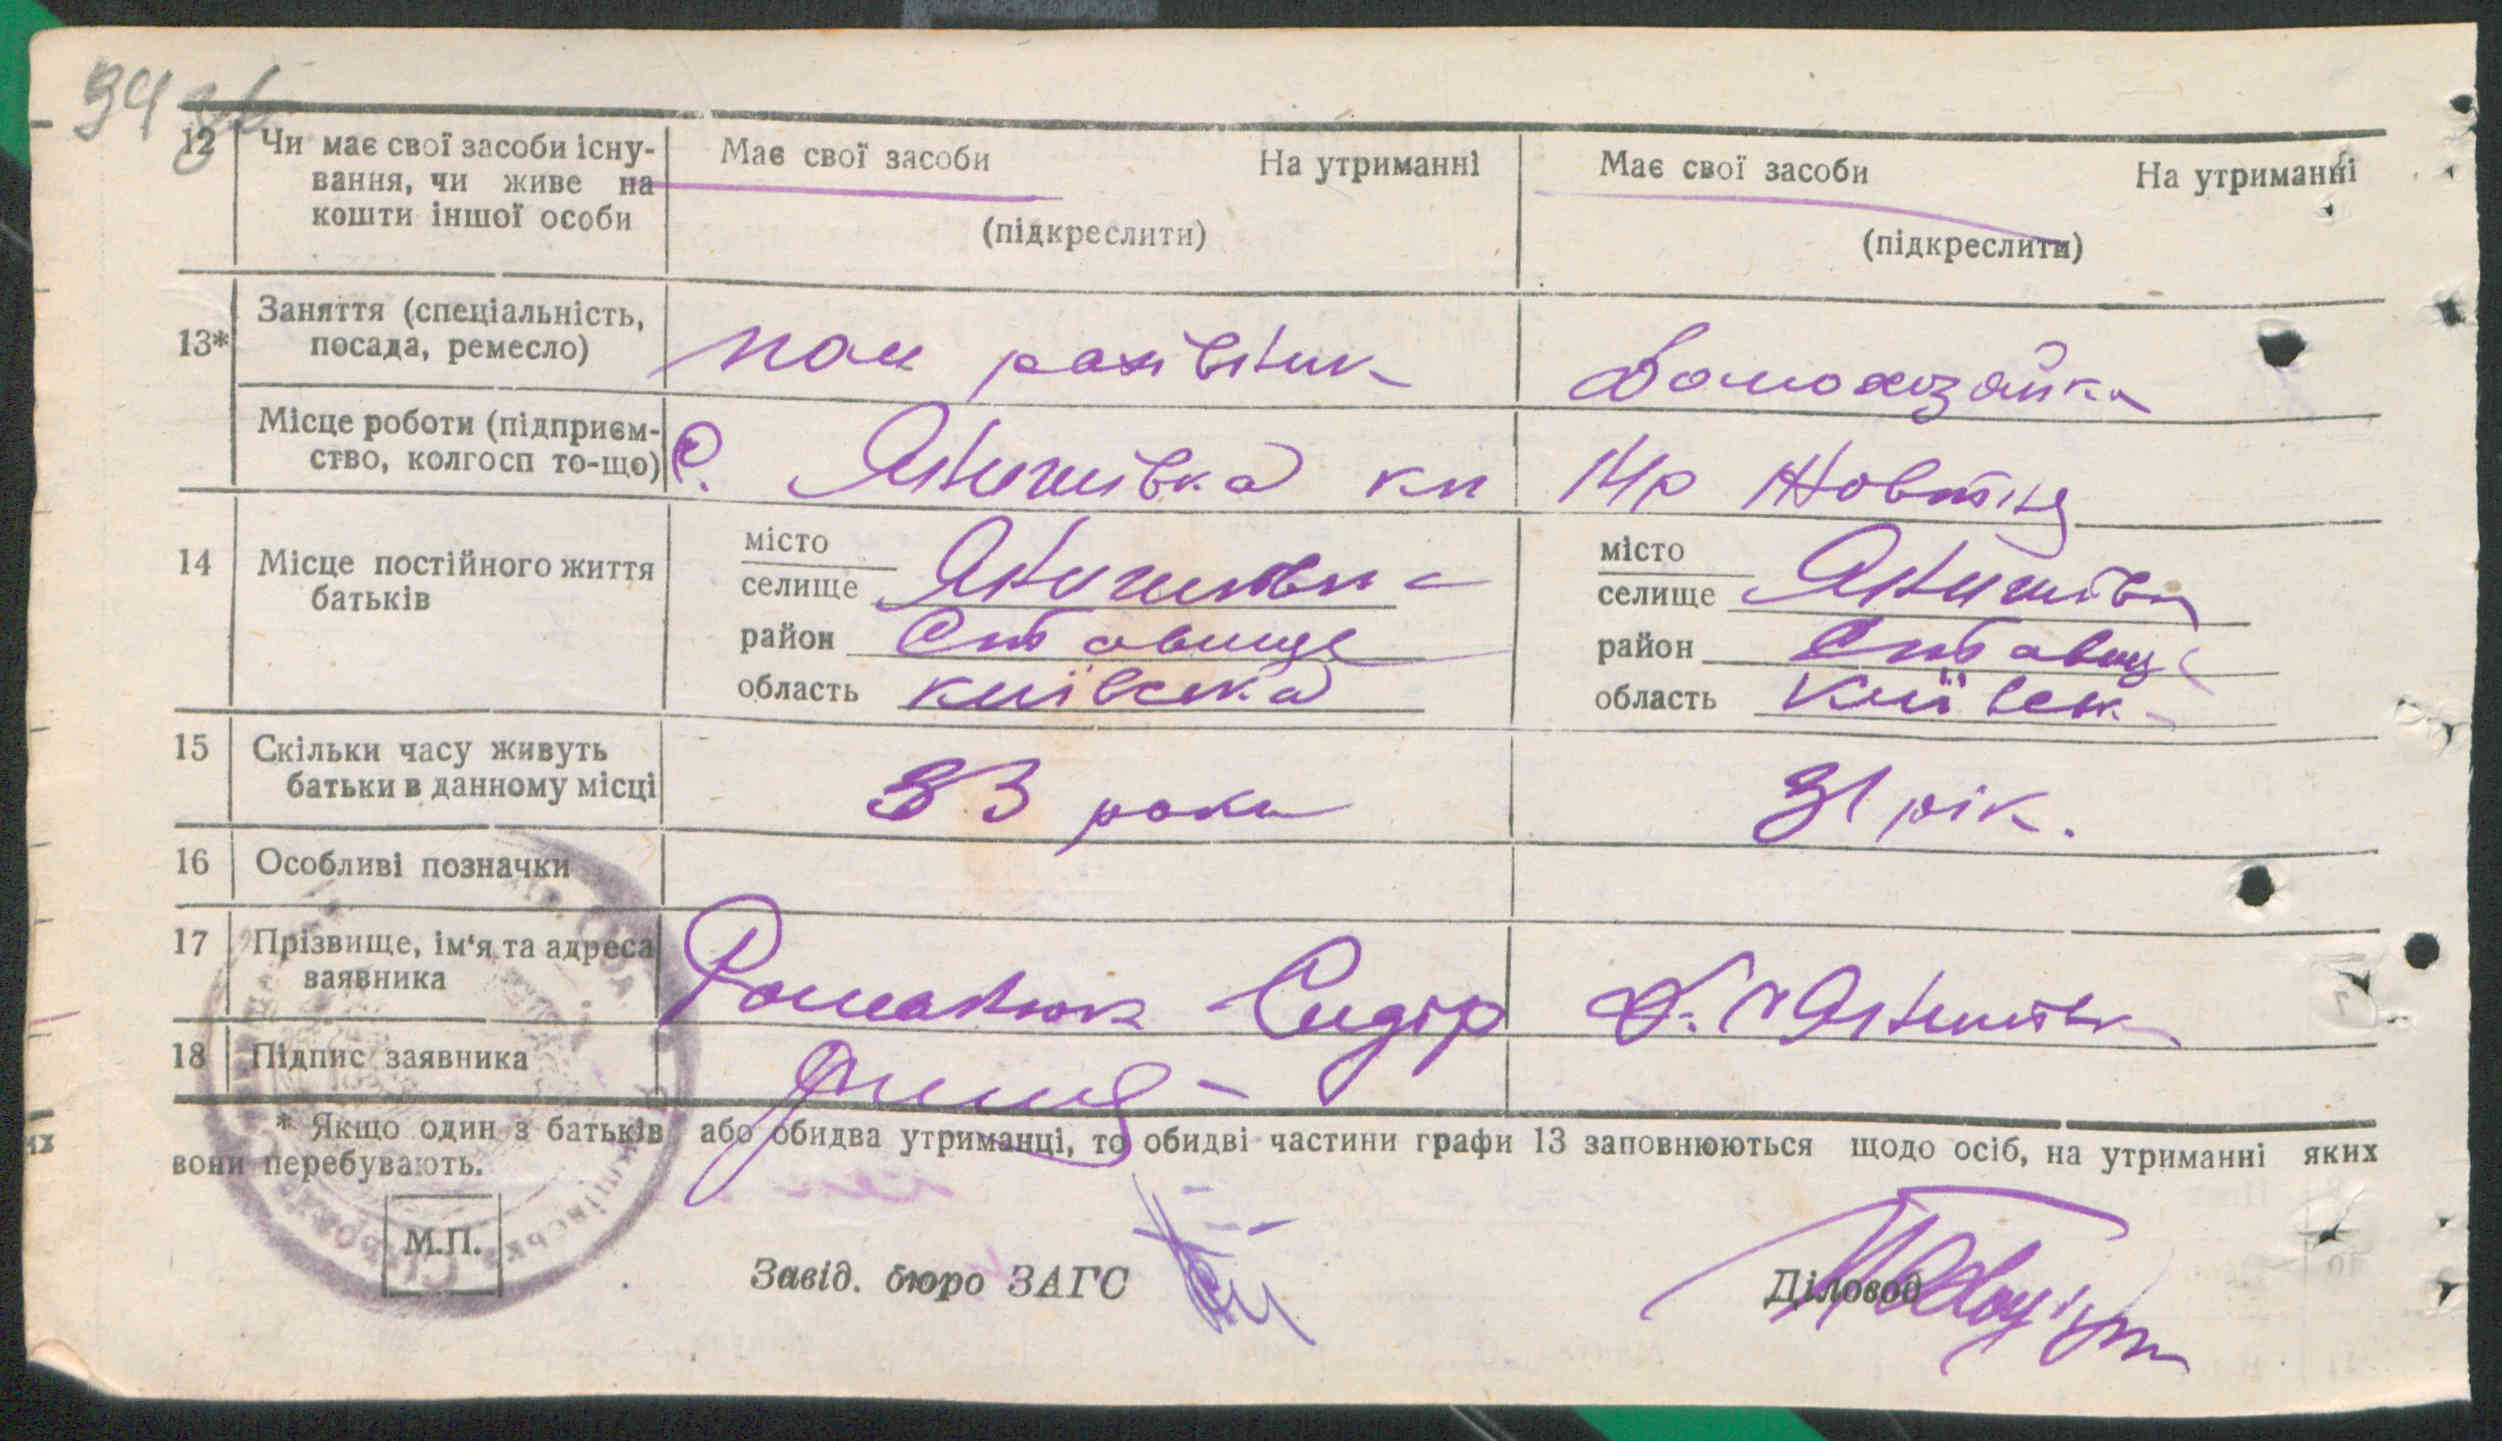 94
12 Чи має свої засоби існу- Має свої засоби На утриманні Має свої засоби На утриманні
вання, чи живе на
кошти іншої особи (підкреслити) (підкреслити)
13* Заняття (спеціальність, посада, ремесло) пом рахівника Домохозяйка
Місце роботи (підприєм-
ство, колгосп то-що) С. Янишівка кп 14 р Жовтня
14 Місце постійного життя
батьків
місто
селище Янишівка
район Ставище
область київська
місто
селище Янишівка
район Ставище
область Київськ
15 Скільки часу живуть
батьки в данному місці 33 роки 31 рік.
16 Особливі позначки
17 Прізвище, ім'я та адреса
заявника Романюк Сидір С. Янишівк
18 Підпис заявника
* Якщо один з батьків або обидва утриманці, то обидві частини графи 13 заповнюються щодо осіб, на утриманні яких
вони перебувають.
М.П.
Завід. бюро ЗАГС Діловод